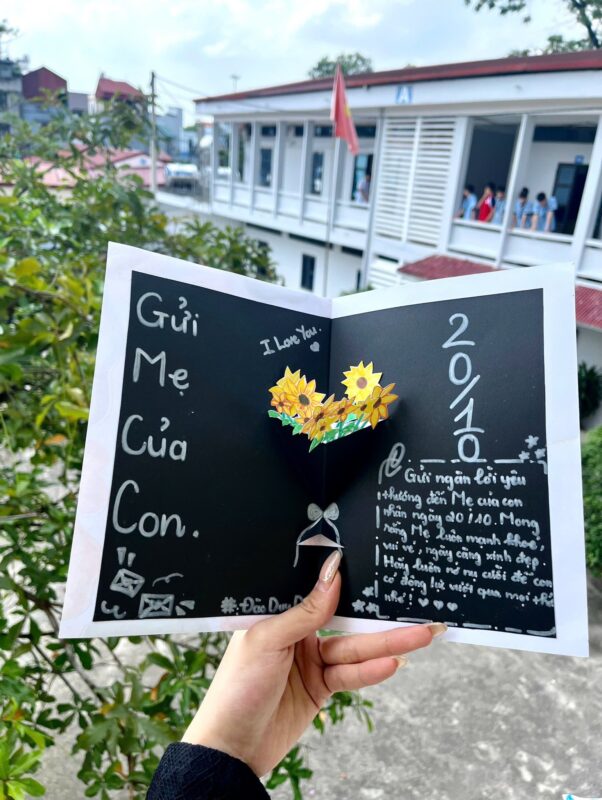 Gửi
Mẹ
Của
Con.
I Love You.
#. Đào Duy
20/10
Gửi ngàn lời yêu
thương đến Mẹ của con
nhân ngày 20/10. Mong
rằng Mẹ luôn mạnh khoẻ,
vui vẻ, ngày càng xinh đẹp.
Hãy luôn nở nụ cười để con
có động lực vượt qua mọi thứ
nhé!
A